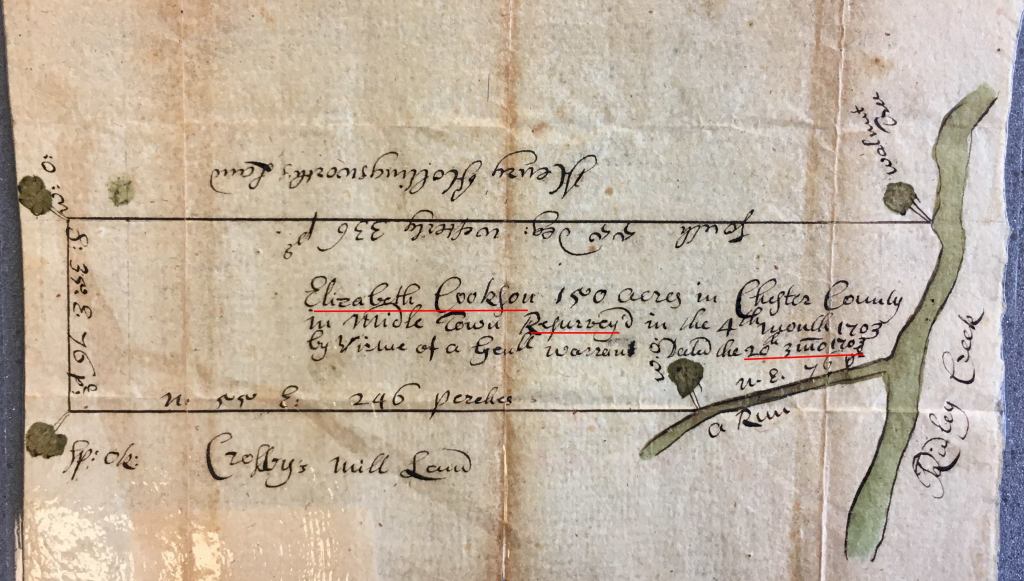 walnut
Tree
Henry Hollingsworths Land
w: O:
South 55 Deg: westerly 336 ps
S: 35o: E 76 ps:
Elizabeth Cookson 150 acres in Chester County
in Midle Town Resurvey'd in the 4th month 1703
by Virtue of a Genll warrant Dated the 20th 3mo 1703
w: o
n: E: 76 ps
n: 55 E: 246 perches
a Run
Ridley Creek
Sp: ok:
Crosbys Mill Land